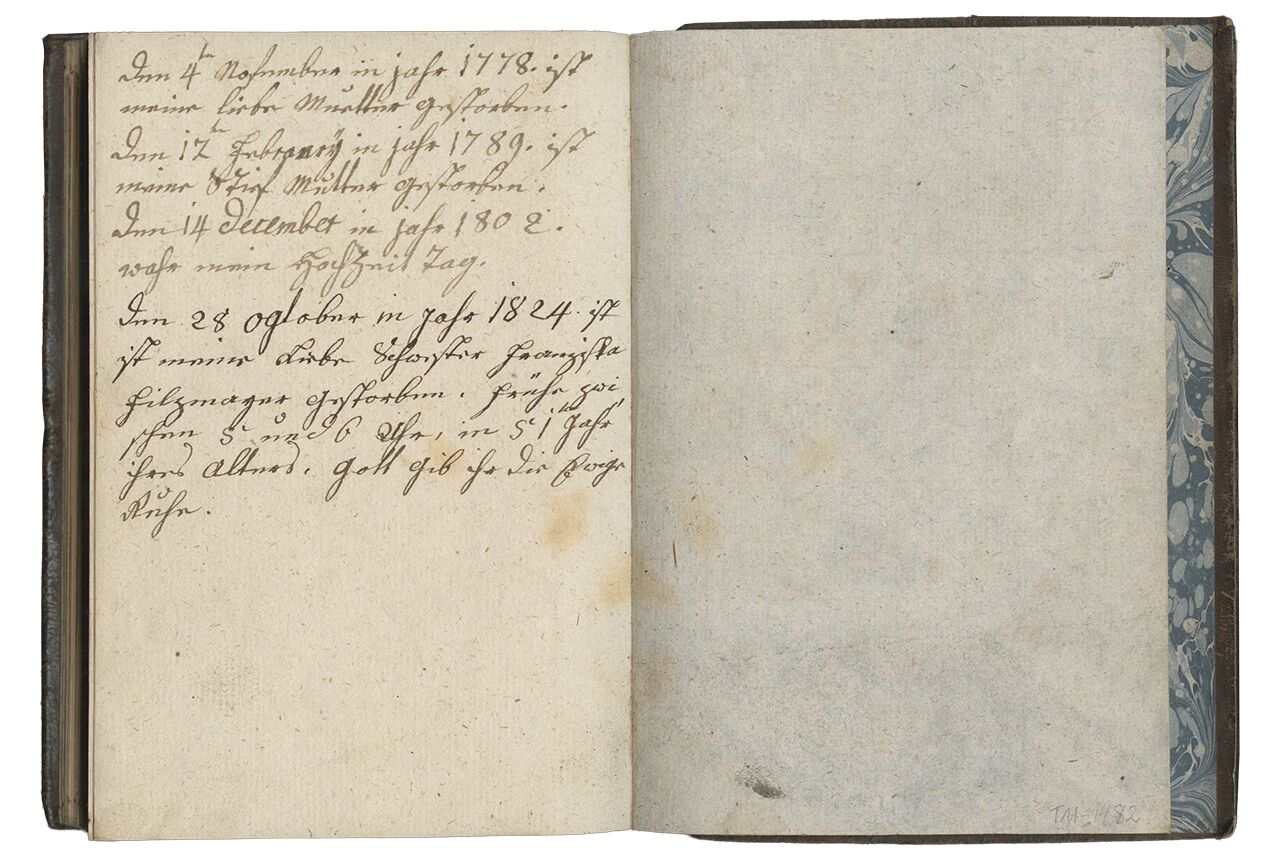 Den 4tn Nofember in jahr 1778. ist
meine liebe Muetter gestorben.
Den 12tn Februarÿ in jahr 1789. ist
meine Stief Mutter gestorben.
Den 14 December in jahr 1802.
wahr mein Hochzeit Tag.
Den 28 ogtober in Jahr 1824. ist
ist meine Liebe Schwester Franziska
Filzmayer gestorben. Frühe zwi
schen 5 und 6 Uhr, in 51tn Jahr
ihres Alters. Gott gib ihr die Ewige
Ruhe.
TM-1482